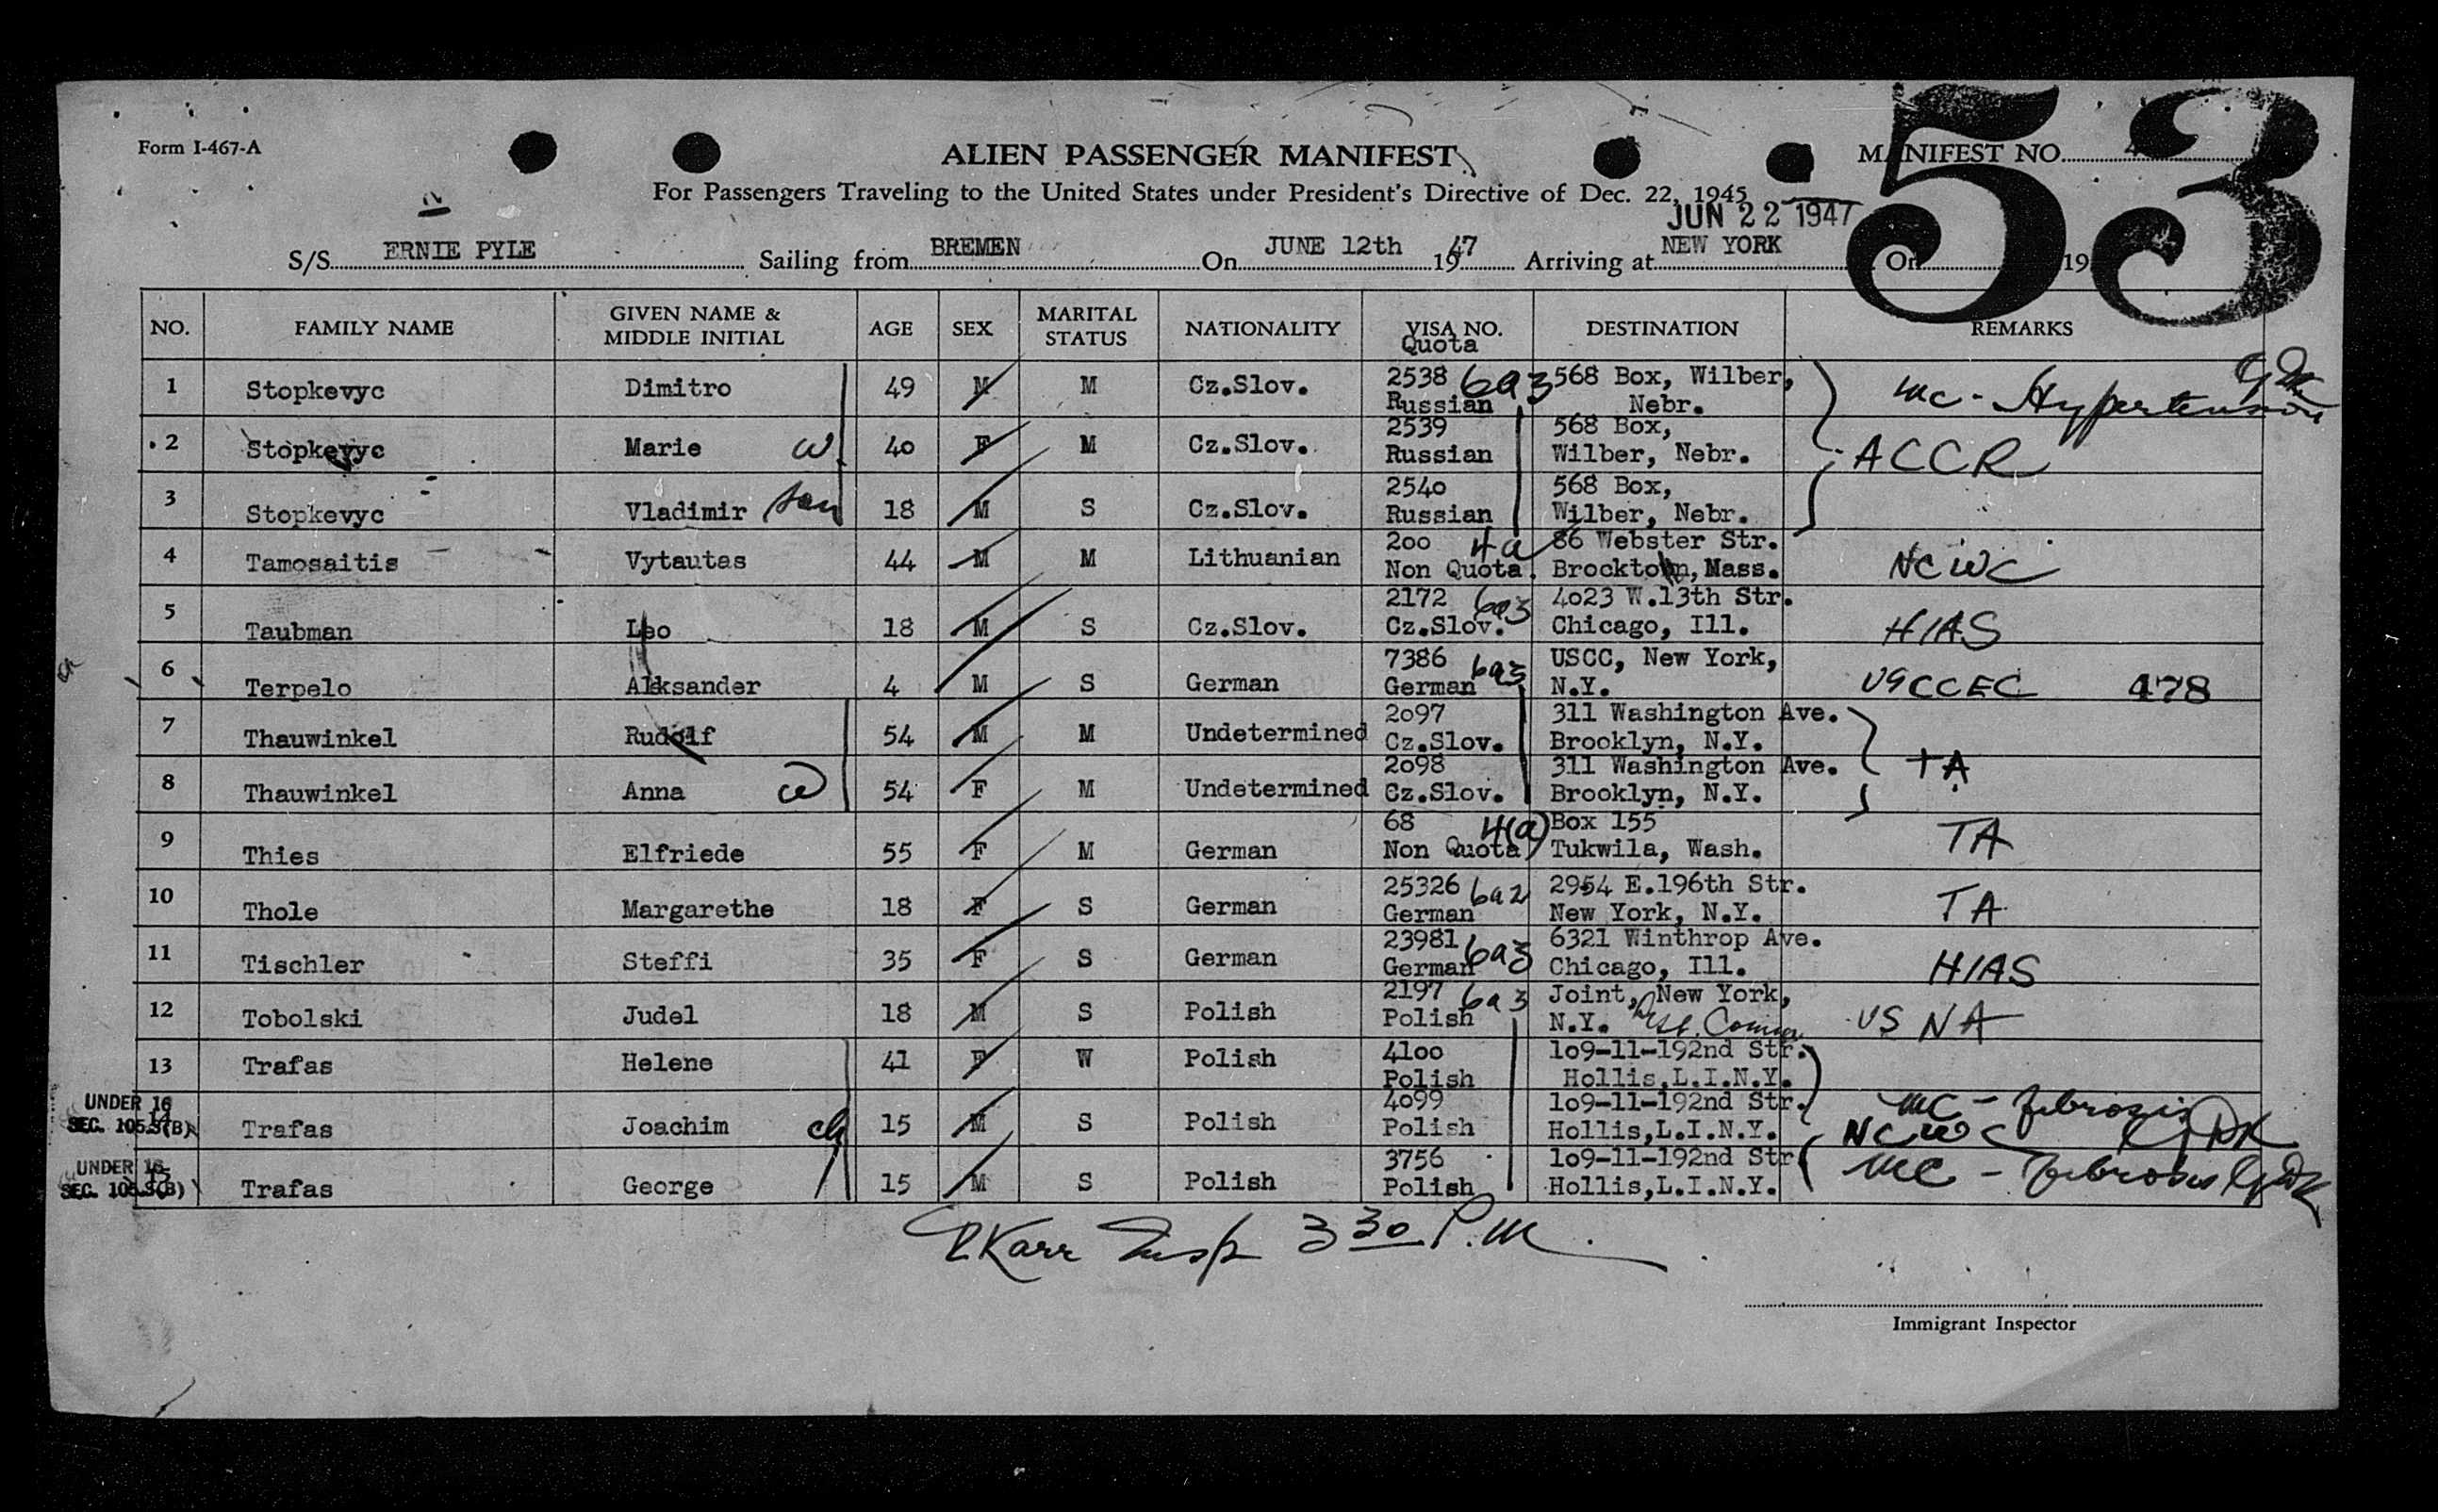 Form I-467-A
ALIEN PASSENGER MANIFEST
MANIFEST NO.
53
For Passengers Traveling to the United States under President's Directive of Dec. 22, 1945
JUN 22 1947
S/S ERNIE PYLE Sailing from BREMEN On JUNE 12th 1947 Arriving at NEW YORK On 19
NO. FAMILY NAME GIVEN NAME & MIDDLE INITIAL AGE SEX MARITAL STATUS NATIONALITY VISA NO. Quota DESTINATION REMARKS
1 Stopkevyc Dimitro 49 M M Cz.Slov. 2538 6a3 568 Box, Wilber, mc - Hypertension
Russian Nebr.
2 Stopkevyc Marie W 40 F M Cz.Slov. 2539 568 Box,
Russian Wilber, Nebr. ACCR
3 Stopkevyc Vladimir son 18 M S Cz.Slov. 2540 568 Box,
Russian Wilber, Nebr.
4 Tamosaitis Vytautas 44 M M Lithuanian 200 4a 86 Webster Str. NCWC
Non Quota. Brockton, Mass.
5 Taubman Leo 18 M S Cz.Slov. 2172 6a3 4023 W.13th Str. HIAS
Cz.Slov. Chicago, Ill.
6 Terpelo Alksander 4 M S German 7386 6a3 USCC, New York, USCCEC 478
German N.Y.
7 Thauwinkel Rudolf 54 M M Undetermined 2097 311 Washington Ave.
Cz.Slov. Brooklyn, N.Y.
8 Thauwinkel Anna W 54 F M Undetermined 2098 311 Washington Ave. TA
Cz.Slov. Brooklyn, N.Y.
9 Thies Elfriede 55 F M German 68 4(a) Box 155 TA
Non Quota Tukwila, Wash.
10 Thole Margarethe 18 F S German 25326 6a2 2954 E.196th Str. TA
German New York, N.Y.
11 Tischler Steffi 35 F S German 23981 6a3 6321 Winthrop Ave. HIAS
German Chicago, Ill.
12 Tobolski Judel 18 M S Polish 2197 6a3 Joint, New York, USNA
Polish N.Y.
13 Trafas Helene 41 F W Polish 4100 109-11-192nd Str.
Polish Hollis,L.I.N.Y.
UNDER 16
SEC. 105.3(B)
14 Trafas Joachim ch 15 M S Polish 4099 109-11-192nd Str. mc - fibrosis
Polish Hollis,L.I.N.Y. NCWC
UNDER 16
SEC. 105.3(B)
15 Trafas George 15 M S Polish 3756 109-11-192nd Str mc - fibrosis
Polish Hollis,L.I.N.Y.
Karr Insp 3 30 P.M.
Immigrant Inspector